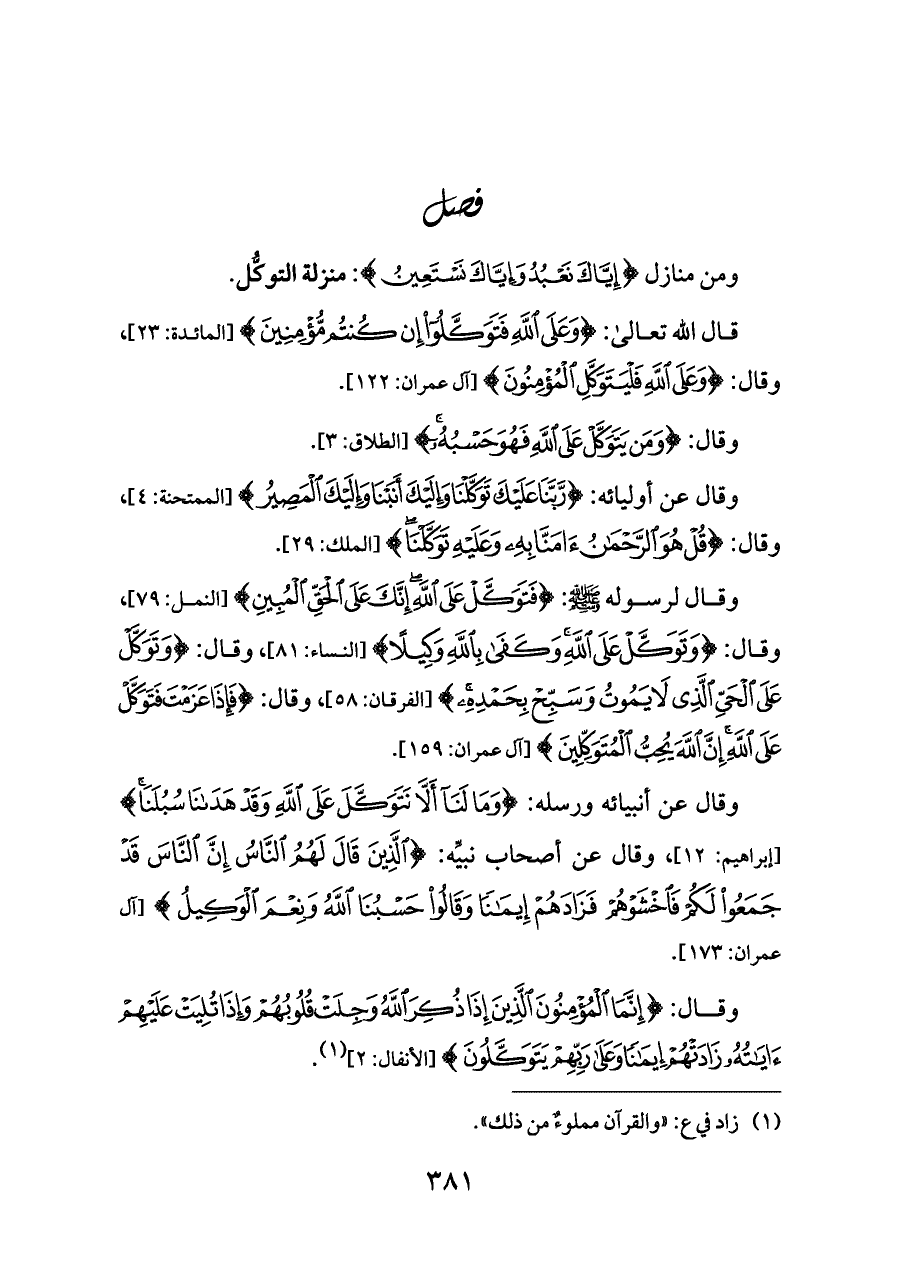 فصل
ومن منازل ﴿إِيَّاكَ نَعْبُدُ وَإِيَّاكَ نَسْتَعِينُ﴾: منزلة التوكُّل.
قال الله تعالىٰ: ﴿وَعَلَى اللَّهِ فَتَوَكَّلُوا إِن كُنتُم مُّؤْمِنِينَ﴾ [المائدة: ٢٣]،
وقال: ﴿وَعَلَى اللَّهِ فَلْيَتَوَكَّلِ الْمُؤْمِنُونَ﴾ [آل عمران: ١٢٢].
وقال: ﴿وَمَن يَتَوَكَّلْ عَلَى اللَّهِ فَهُوَ حَسْبُهُۥٓ ۚ﴾ [الطلاق: ٣].
وقال عن أوليائه: ﴿رَّبَّنَا عَلَيْكَ تَوَكَّلْنَا وَإِلَيْكَ أَنَبْنَا وَإِلَيْكَ الْمَصِيرُ﴾ [الممتحنة: ٤]،
وقال: ﴿قُلْ هُوَ الرَّحْمَٰنُ ءَامَنَّا بِهِۦ وَعَلَيْهِ تَوَكَّلْنَا ۖ﴾ [الملك: ٢٩].
وقال لرسوله ﷺ: ﴿فَتَوَكَّلْ عَلَى اللَّهِ ۖ إِنَّكَ عَلَى الْحَقِّ الْمُبِينِ﴾ [النمل: ٧٩]،
وقال: ﴿وَتَوَكَّلْ عَلَى اللَّهِ ۚ وَكَفَىٰ بِاللَّهِ وَكِيلًا﴾ [النساء: ٨١]، وقال: ﴿وَتَوَكَّلْ
عَلَى الْحَيِّ الَّذِى لَا يَمُوتُ وَسَبِّحْ بِحَمْدِهِۦ ۚ﴾ [الفرقان: ٥٨]، وقال: ﴿فَإِذَا عَزَمْتَ فَتَوَكَّلْ
عَلَى اللَّهِ ۚ إِنَّ اللَّهَ يُحِبُّ الْمُتَوَكِّلِينَ﴾ [آل عمران: ١٥٩].
وقال عن أنبيائه ورسله: ﴿وَمَا لَنَآ أَلَّا نَتَوَكَّلَ عَلَى اللَّهِ وَقَدْ هَدَىٰنَا سُبُلَنَا ۚ﴾
[إبراهيم: ١٢]، وقال عن أصحاب نبيِّه: ﴿الَّذِينَ قَالَ لَهُمُ النَّاسُ إِنَّ النَّاسَ قَدْ
جَمَعُوا لَكُمْ فَاخْشَوْهُمْ فَزَادَهُمْ إِيمَٰنًا وَقَالُوا حَسْبُنَا اللَّهُ وَنِعْمَ الْوَكِيلُ﴾ [آل
عمران: ١٧٣].
وقال: ﴿إِنَّمَا الْمُؤْمِنُونَ الَّذِينَ إِذَا ذُكِرَ اللَّهُ وَجِلَتْ قُلُوبُهُمْ وَإِذَا تُلِيَتْ عَلَيْهِمْ
ءَايَٰتُهُۥ زَادَتْهُمْ إِيمَٰنًا وَعَلَىٰ رَبِّهِمْ يَتَوَكَّلُونَ﴾ [الأنفال: ٢](١).
(١) زاد في ع: «والقرآن مملوءٌ من ذلك».
٣٨١